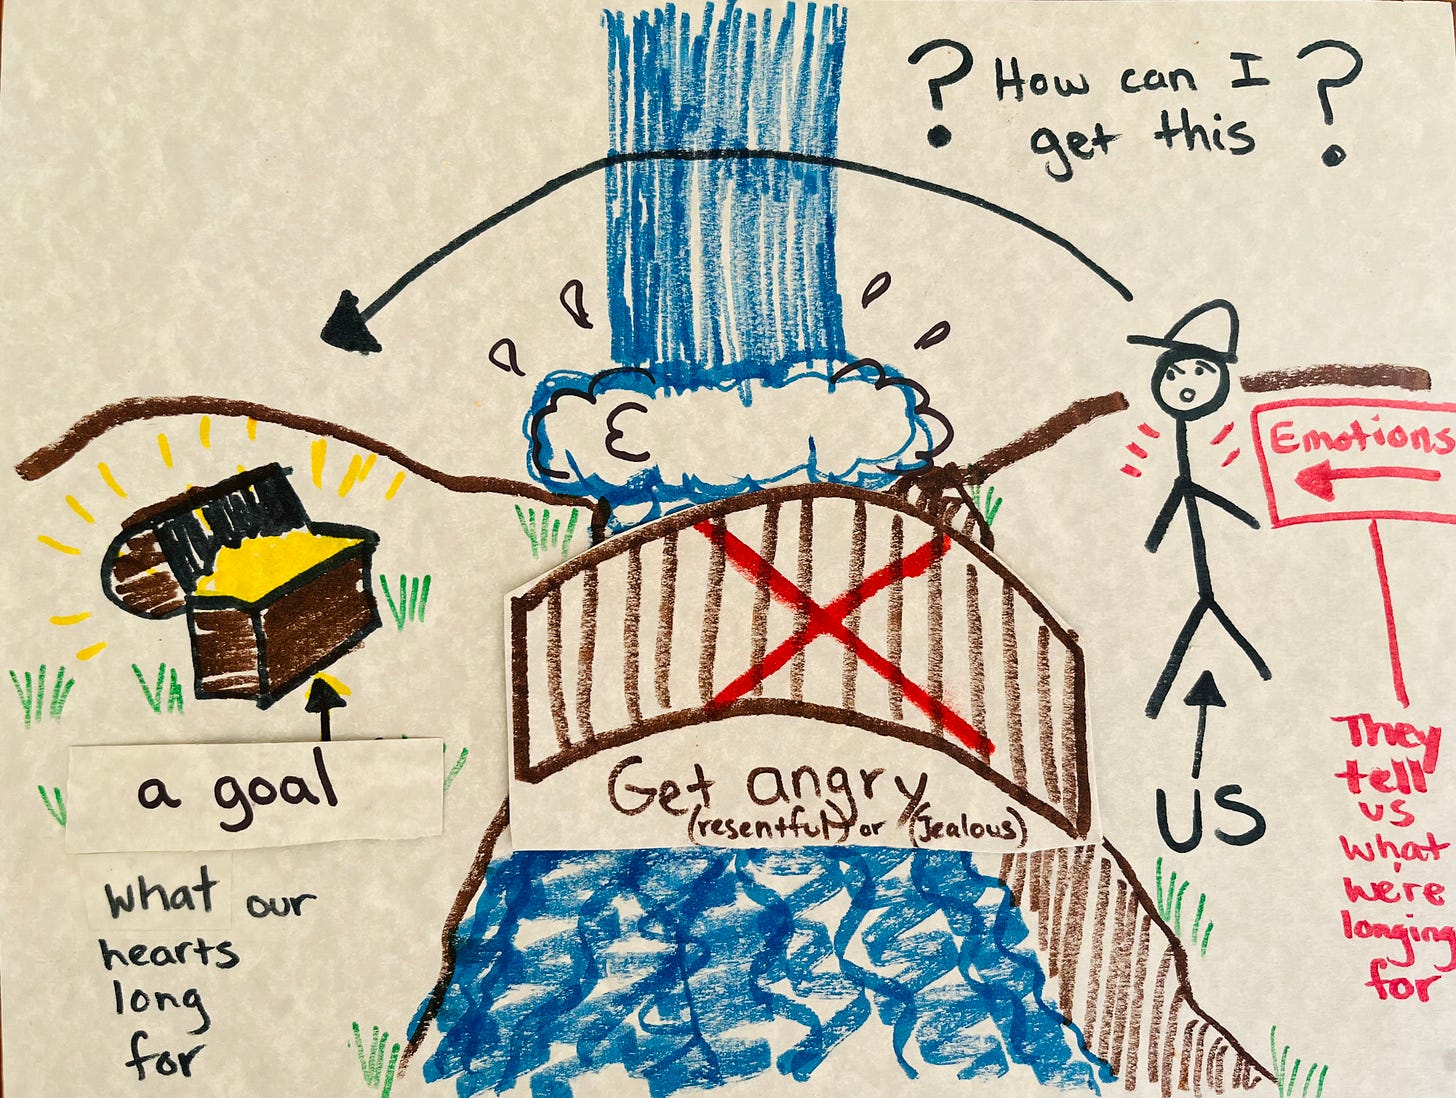 ? How can I ?
get this
Emotions
They
tell
us
what
we're
longing
for
US
Get angry
(resentful) or (Jealous)
a goal
what our
hearts
long
for